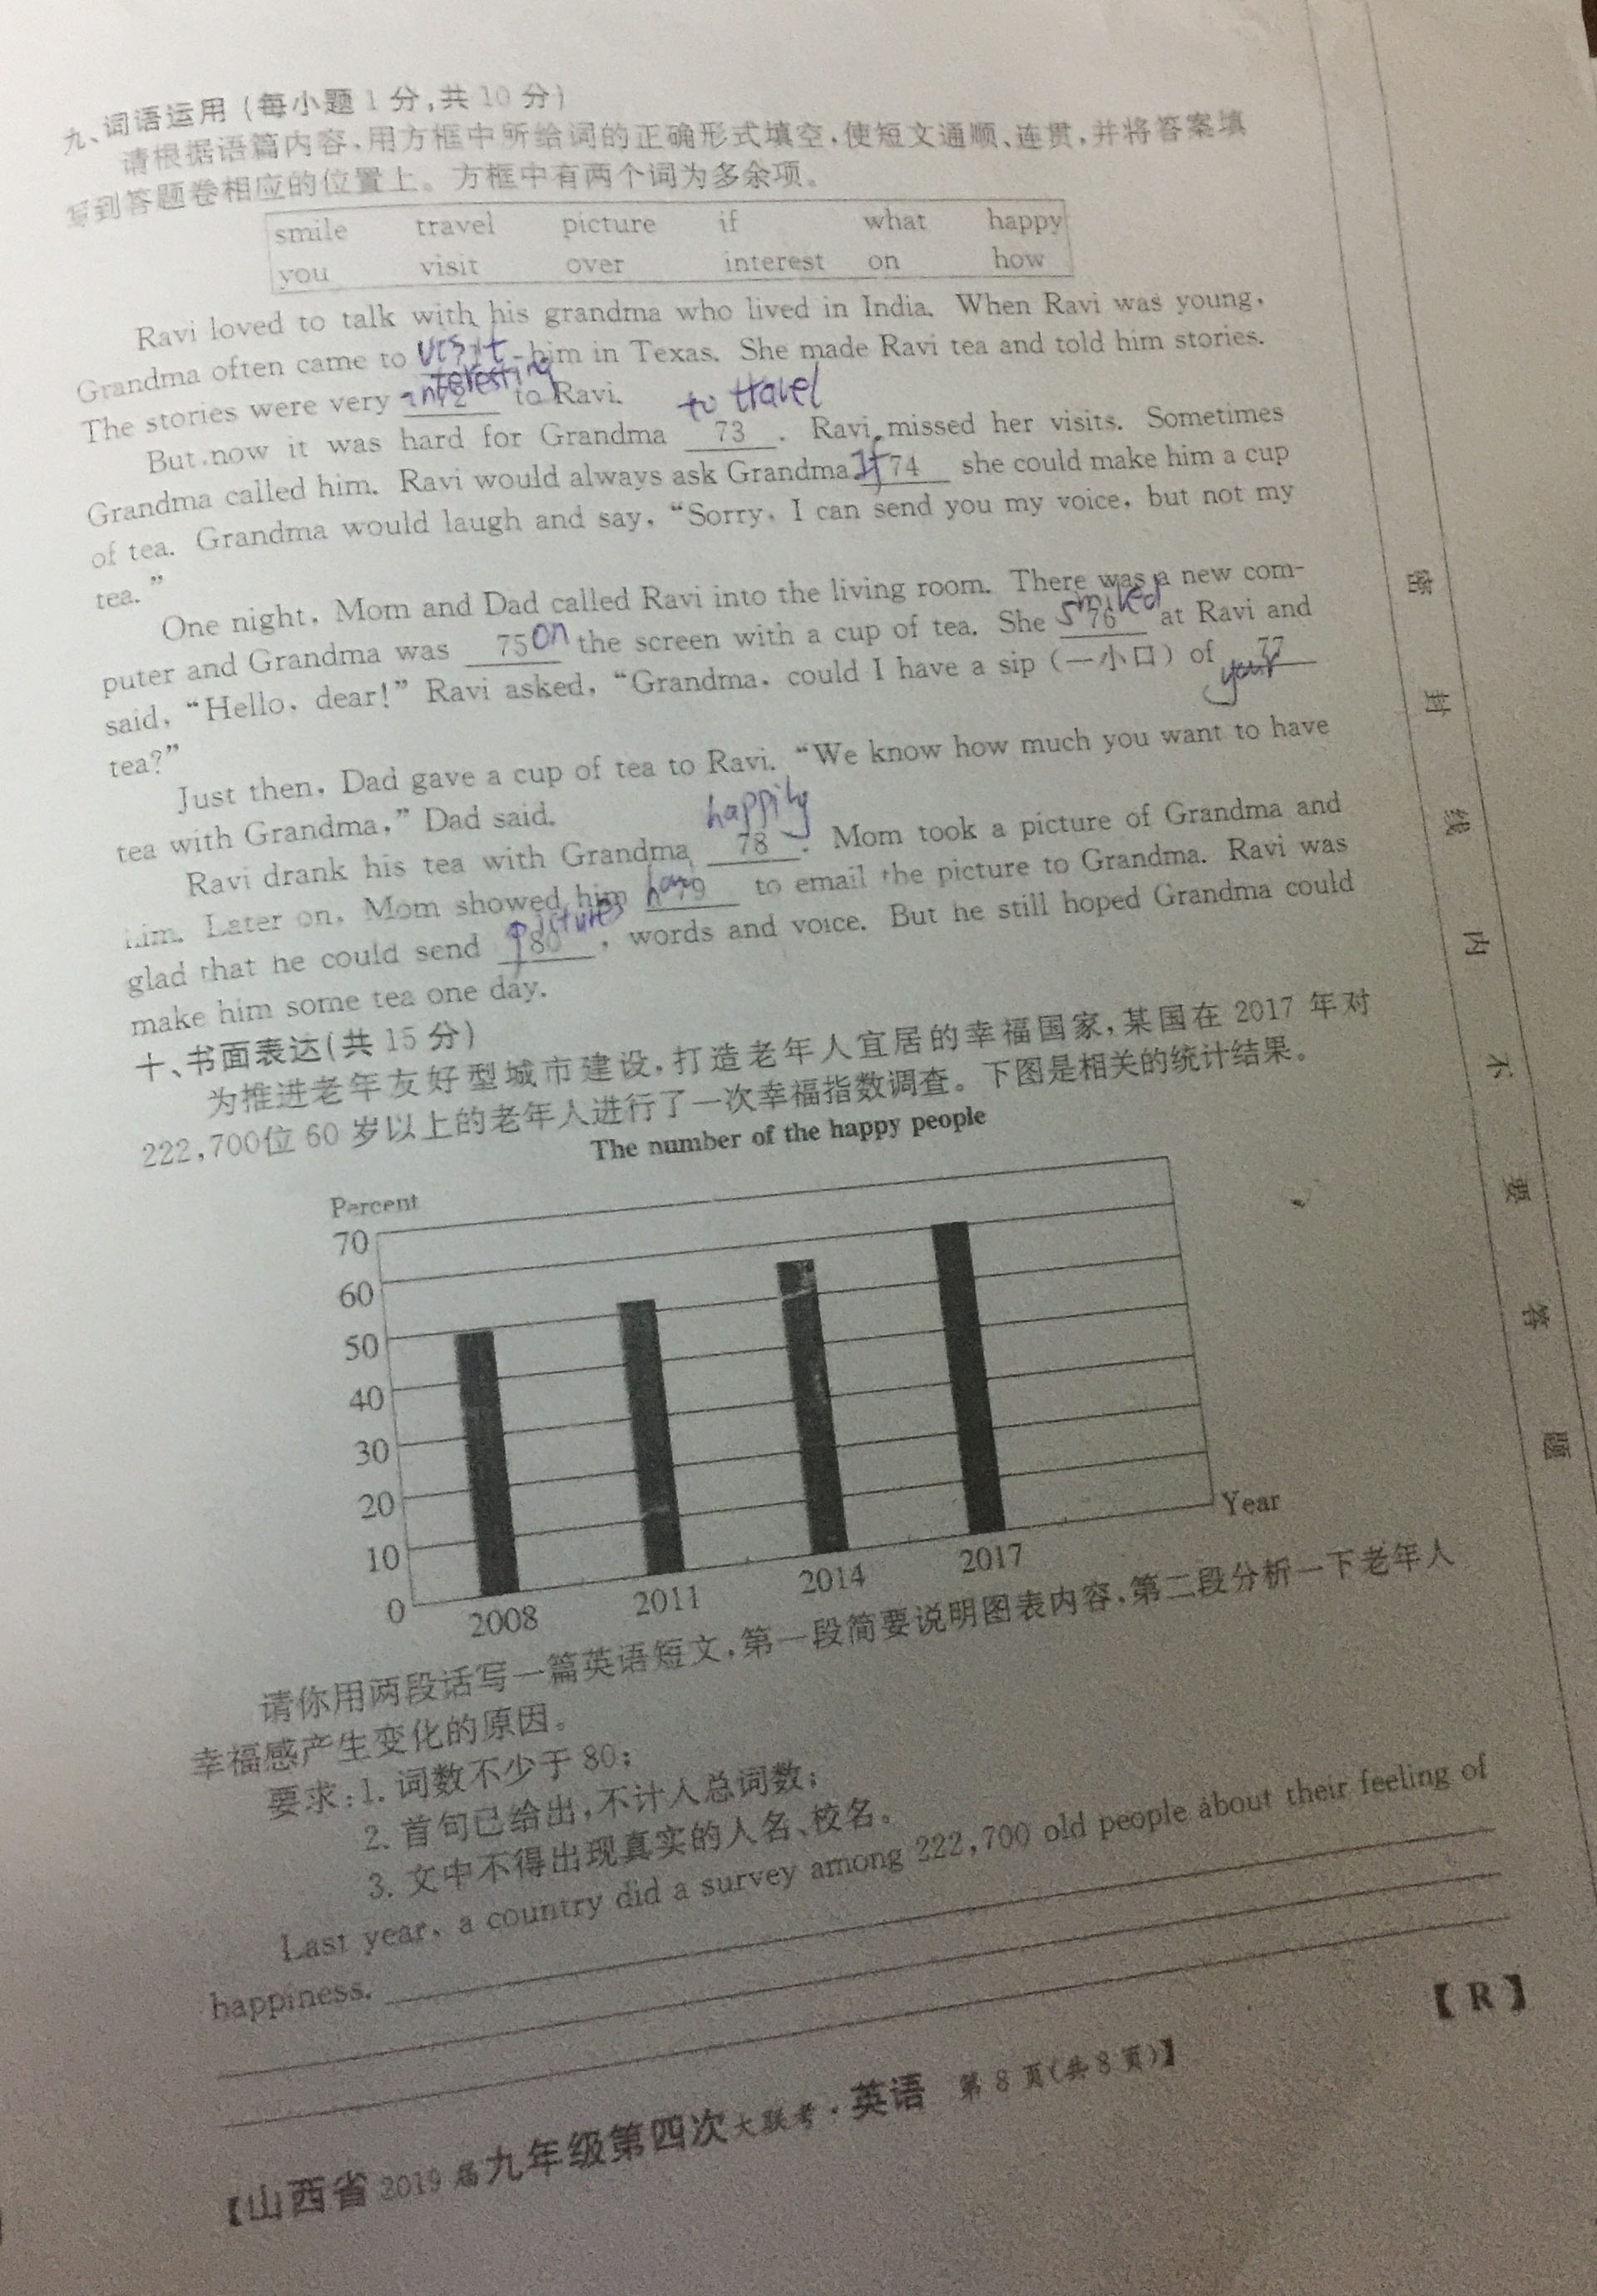 九、词语运用(每小题1分,共10分)
请根据语篇内容,用方框中所给词的正确形式填空,使短文通顺、连贯,并将答案填
写到答题卷相应的位置上。方框中有两个词为多余项。
smile travel picture if what happy
you visit over interest on how
Ravi loved to talk with his grandma who lived in India. When Ravi was young,
Grandma often came to visit him in Texas. She made Ravi tea and told him stories.
The stories were very interesting 72 to Ravi.
to travel
But now it was hard for Grandma 73 . Ravi missed her visits. Sometimes
Grandma called him. Ravi would always ask Grandma If 74 she could make him a cup
of tea. Grandma would laugh and say, “Sorry, I can send you my voice, but not my
tea.”
One night, Mom and Dad called Ravi into the living room. There was a new com-
puter and Grandma was 75 on the screen with a cup of tea. She smiled 76 at Ravi and
said, “Hello, dear!” Ravi asked, “Grandma, could I have a sip (一小口) of 77 your
tea?”
Just then, Dad gave a cup of tea to Ravi. “We know how much you want to have
tea with Grandma,” Dad said.
happily
Ravi drank his tea with Grandma 78 . Mom took a picture of Grandma and
him. Later on, Mom showed him how 79 to email the picture to Grandma. Ravi was
glad that he could send pictures 80 , words and voice. But he still hoped Grandma could
make him some tea one day.
十、书面表达(共15分)
为推进老年友好型城市建设,打造老年人宜居的幸福国家,某国在2017年对
222,700位60岁以上的老年人进行了一次幸福指数调查。下图是相关的统计结果。
The number of the happy people
Percent
70
60
50
40
30
20
10
0
2008 2011 2014 2017 Year
请你用两段话写一篇英语短文,第一段简要说明图表内容,第二段分析一下老年人
幸福感产生变化的原因。
要求:1. 词数不少于80;
2. 首句已给出,不计入总词数;
3. 文中不得出现真实的人名、校名。
Last year, a country did a survey among 222,700 old people about their feeling of
happiness.
【R】
【山西省2019届九年级第四次大联考·英语 第8页(共8页)】
密
封
线
内
不
要
答
题